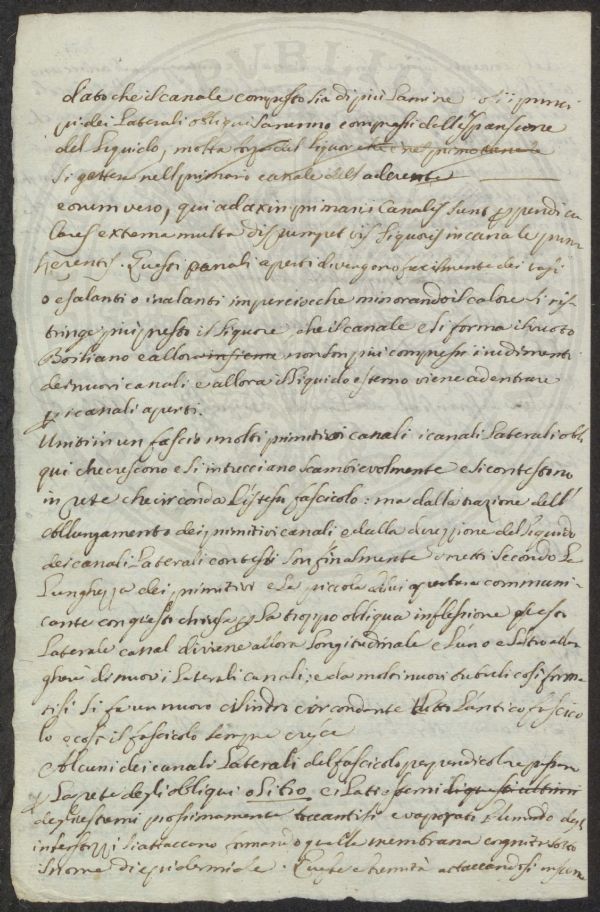 PVBLIC
dato che il canale composto sia di piú lamine o i i princi
pi dei Laterali obliqui saranno compressi dell'espansione
del Liquido, molta
si getterá nell primario canale dell'aderente
eorum vero, qui ad axin primarii Canalis sunt perpendicu
lares extrema multa vis liquoris in canale prim
herentis. Questi canali aperti divengono facilmente dei vasi
o esalanti o inalanti imperciocche minorando il calore si ris
tringe piú presto il liquore, che il canale e si forma il vuoto
Boiliano e allora insieme non son piú compressi i rudimenti
dei nuovi canali e allora il liquido esterno viene ad entrare
per i canali aperti.
Uniti in un fascio molti primitivi canali i canali Laterali obli
qui che crescono e si intrecciano scambievolmente e si contestono
in rete che circonda l'istesso fascicolo: ma dalla trazione dell'
Allungamento dei primitivi canali e dalla direzione del liquido
dei canali Laterali contesti son finalmente eretti secondo la
Lunghezza dei primitivi e la piccola apertura communi
cante con questi chiusa per la troppo obliqua inflessione questo
Laterale canal diviene allora longitudinale e l'uno e l'altro allun
gherá di nuovi Laterali canali; e da molti nuovi tubuli cosi forma
tisi si fa un nuovo cilindro circondante tutto l'antico fascico
lo e cosi il fascicolo sempre cresce
Alcuni dei canali Laterali del fascicolo perpendicolare passan
per la rete degli obliqui o Libro e i Lati estremi di questi ultimi
degli estremi prossimamente toccantisi e vaporato l'umido degl'
interstizzi si attaccano formando quella membrana cognita sotto
il nome di epidermide. Queste estremitá attaccandosi insieme